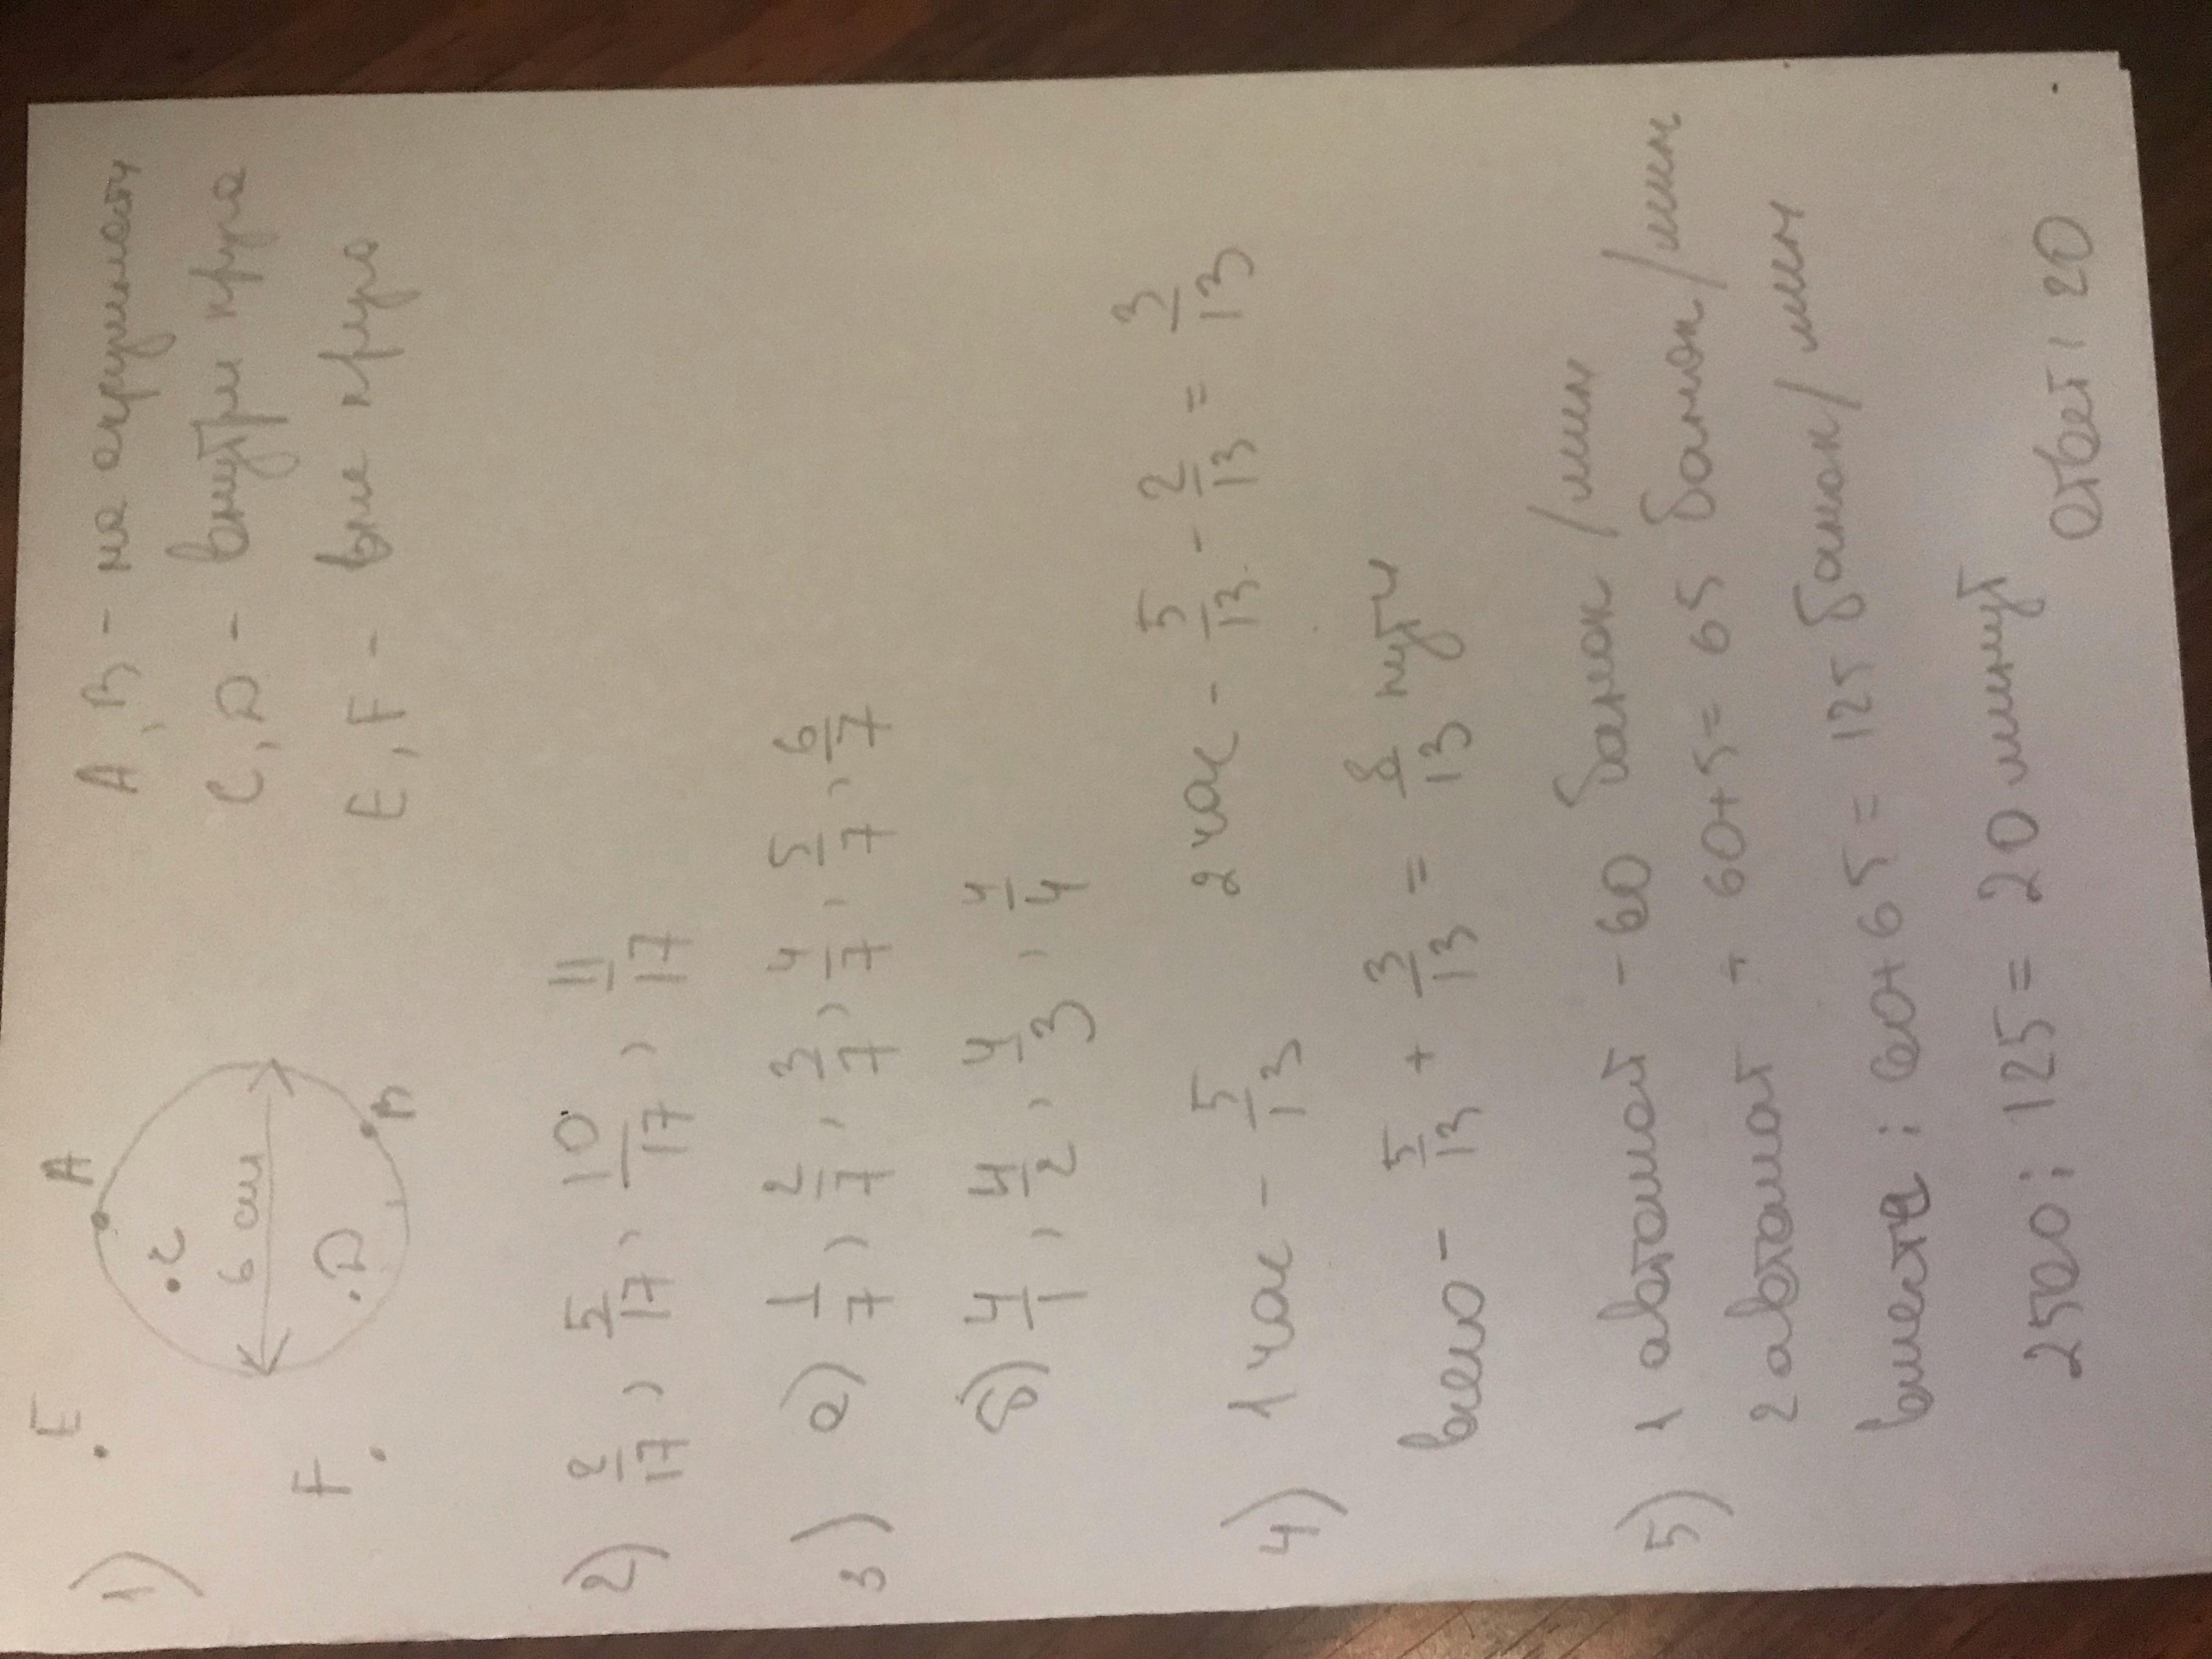 1) E A C 6 см D B F
A, B - на окружности
C, D - внутри круга
E, F - вне круга
2) 2/17, 5/17, 10/17, 11/17
3) а) 1/7, 2/7, 3/7, 4/7, 5/7, 6/7
б) 4/1, 4/2, 4/3, 4/4
4) 1 час - 5/13 2 час - 5/13 - 2/13 = 3/13
всего - 5/13 + 3/13 = 8/13 пути
5) 1 автомат - 60 банок/мин
2 автомат + 60+5= 65 банок/мин
вместе : 60+65= 125 банок/мин
2500 : 125= 20 минут
ответ: 20